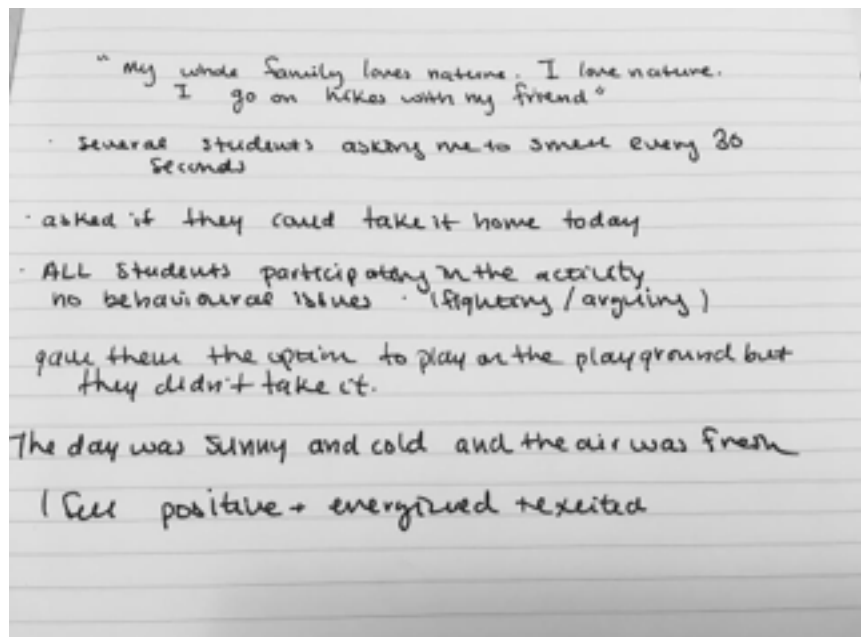 "My whole family loves nature. I love nature.
I go on hikes with my friend"
· several students asking me to smell every 30
seconds
· asked if they could take it home today
· ALL students participating in the activity
no behavioural issues · (fighting / arguing)
gave them the option to play on the playground but
they didn't take it.
The day was sunny and cold and the air was fresh
I feel positive + energized + excited